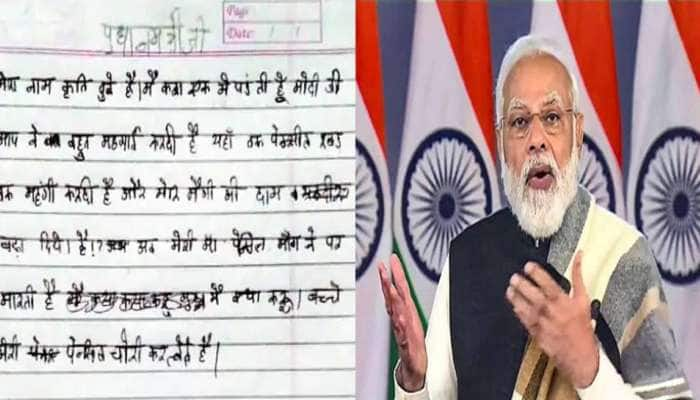 Page
Date: / /
प्रधानमंत्री जी
मेरा नाम कृति दुबे है। मै कक्षा एक मे पडती हूँ मोदी जी
आप ने बहुत महगाई करदी है यहाँ तक पेन्सील रबड
तक महंगी करदी है और मेरे मैगी की दाम
बड़ा दिये है। अब मेरी मा पेन्सिल माँगने पर
मारती है मै क्या करू। बच्चे
मेरी पेन्सिल चोरी करलेते है।